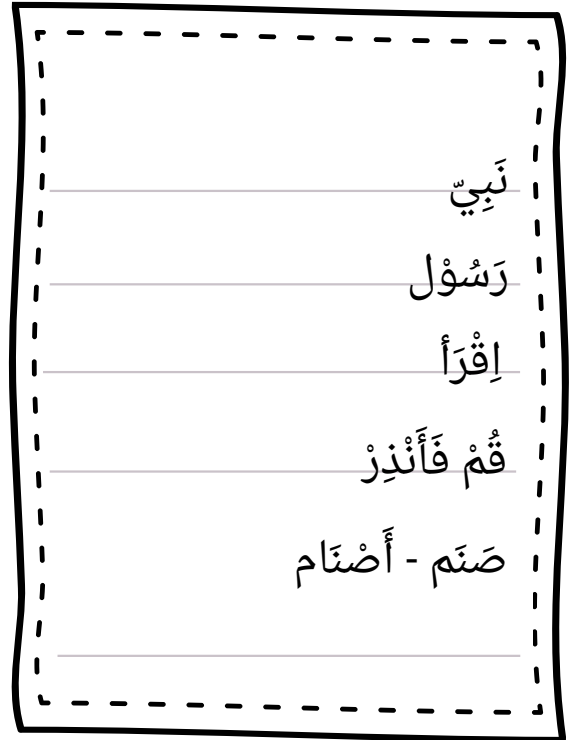 نَبِيّ
رَسُوْل
اِقْرَأ
قُمْ فَأَنْذِرْ
صَنَم - أَصْنَام